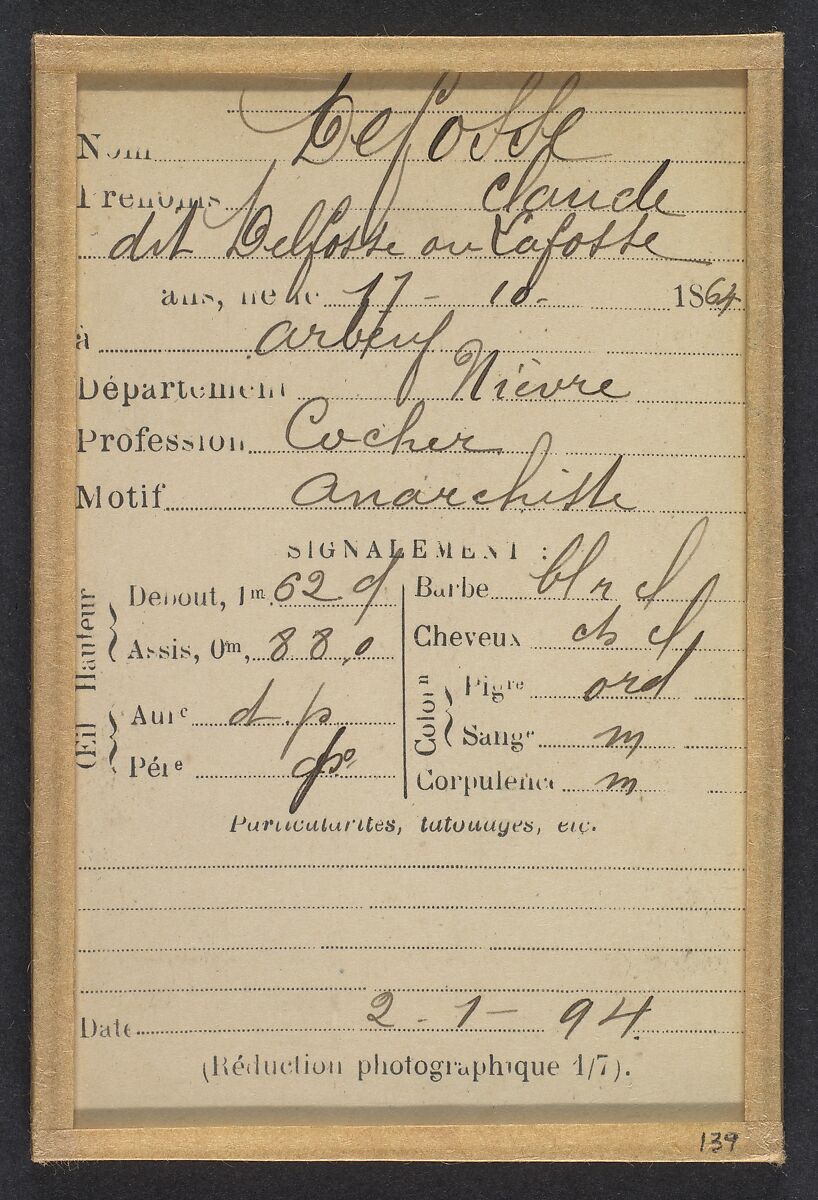 Nom Defosse
Prénoms Claude
dit Delfosse ou Lafosse
ans, né le 17 - 10 - 1864
à Arbeuf
Département Nièvre
Profession Cocher
Motif Anarchiste
SIGNALEMENT :
Hauteur
Debout, 1m. 62 d
Assis, 0m, 88,0
Œil
Aure d. p
Pére
Barbe bl r cl
Cheveux ch cl
Colorn
Pigre ord
Sange m
Corpulence m
Particularités, tatouages, etc.
Date 2 - 1 - 94.
(Réduction photographique 1/7).
139